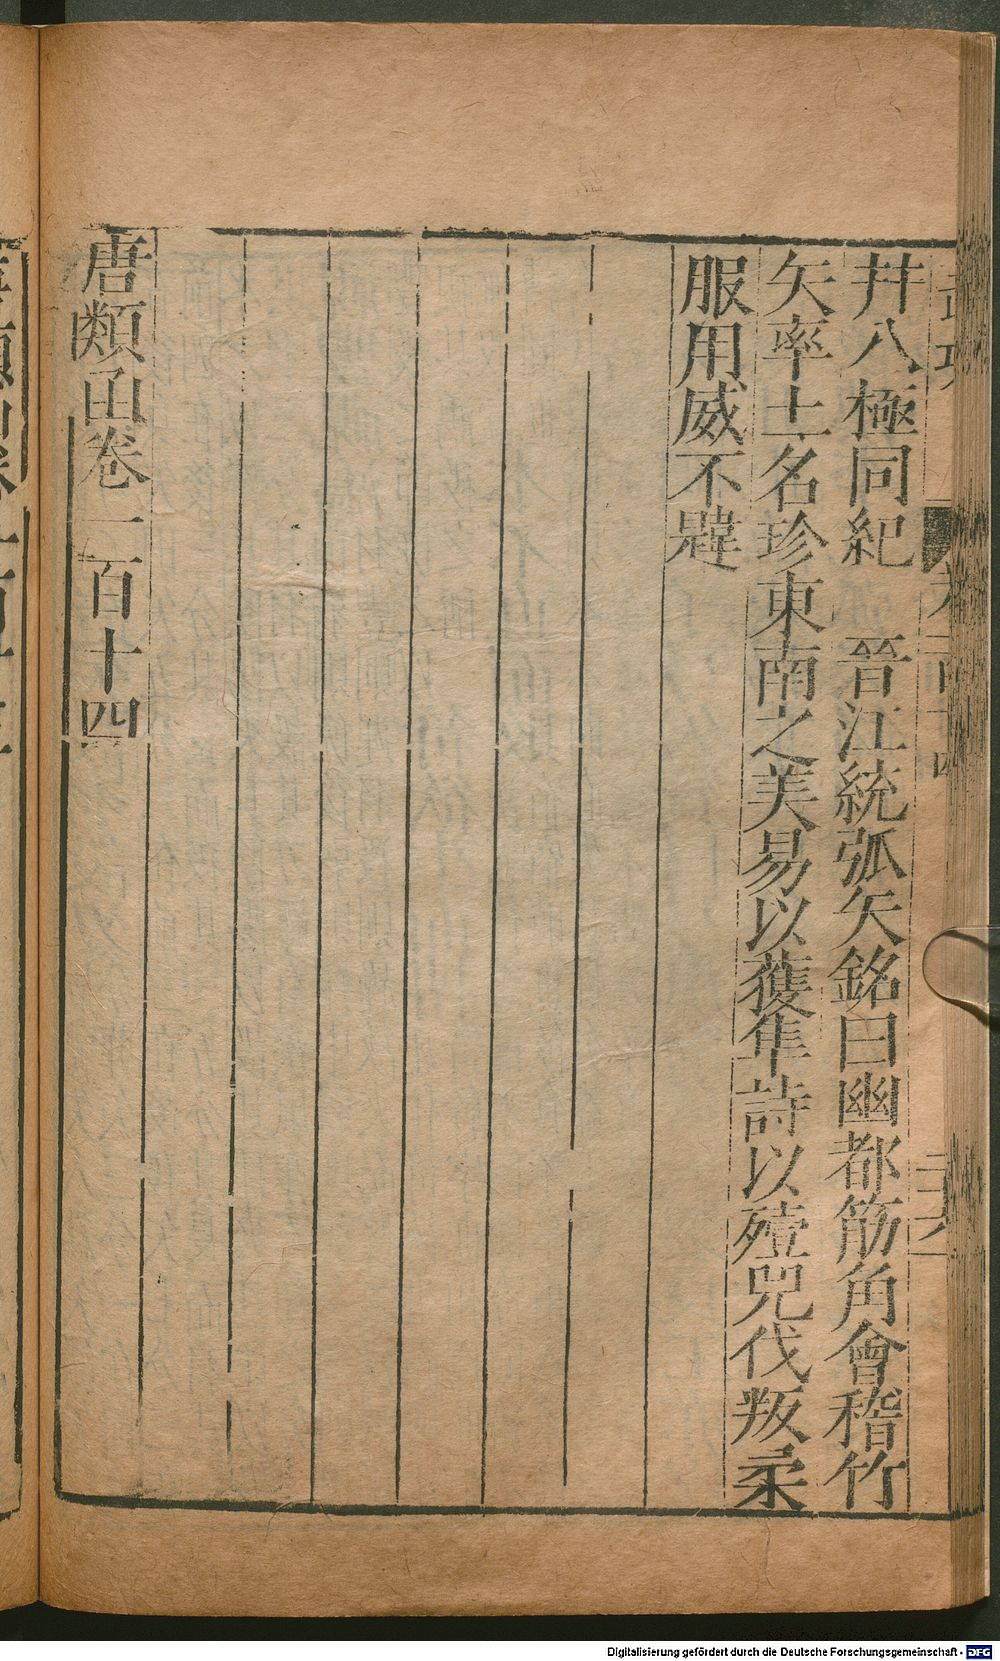 井八極同紀　晉江統弧矢銘曰幽都筋角會稽竹
矢率土名珍東南之美易以獲隼詩以殪兕伐叛柔
服用威不韙
唐類函卷一百十四
Digitalisierung gefördert durch die Deutsche Forschungsgemeinschaft - DFG